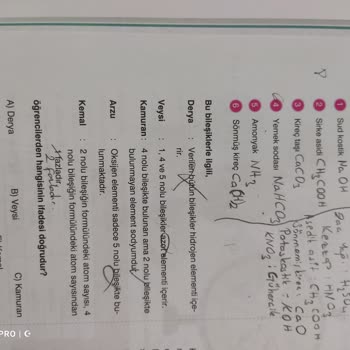 1 Sud kostik NaOH
2 Sirke asidi CH3COOH
3 Kireç taşı CaCO3
4 Yemek sodası NaHCO3
5 Amonyak NH3
6 Sönmüş kireç Ca(OH)2
Kezzap: HNO3
Asetik asit: CH3COOH
Sönmemiş kireç: CaO
Potas kostik = KOH
KNO3: Güherçile
Bu bileşiklerle ilgili,
Derya : Verilen bütün bileşikler hidrojen elementi içe-
rir.
Veysi : 1, 4 ve 5 nolu bileşikler azot elementi içerir.
Kamuran: 4 nolu bileşikte bulunan ama 2 nolu bileşikte
bulunmayan element sodyumdur.
Arzu : Oksijen elementi sadece 5 nolu bileşikte bu-
lunmaktadır.
Kemal : 2 nolu bileşiğin formülündeki atom sayısı, 4
nolu bileşiğin formülündeki atom sayısından
fazladır.
2 fazladır.
öğrencilerden hangisinin ifadesi doğrudur?
A) Derya B) Veysi C) Kamuran
PRO | G